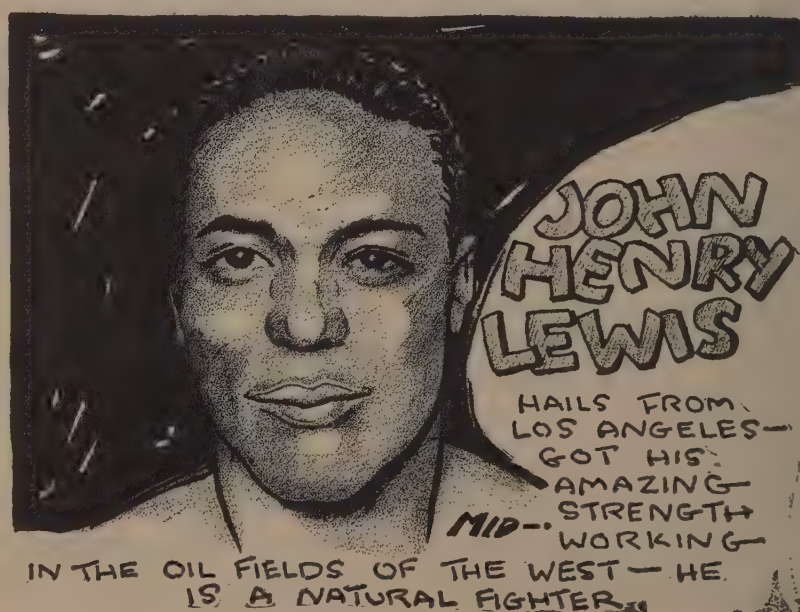 JOHN
HENRY
LEWIS
HAILS FROM
LOS ANGELES—
GOT HIS
AMAZING
STRENGTH
MID—
WORKING
IN THE OIL FIELDS OF THE WEST — HE
IS A NATURAL FIGHTER